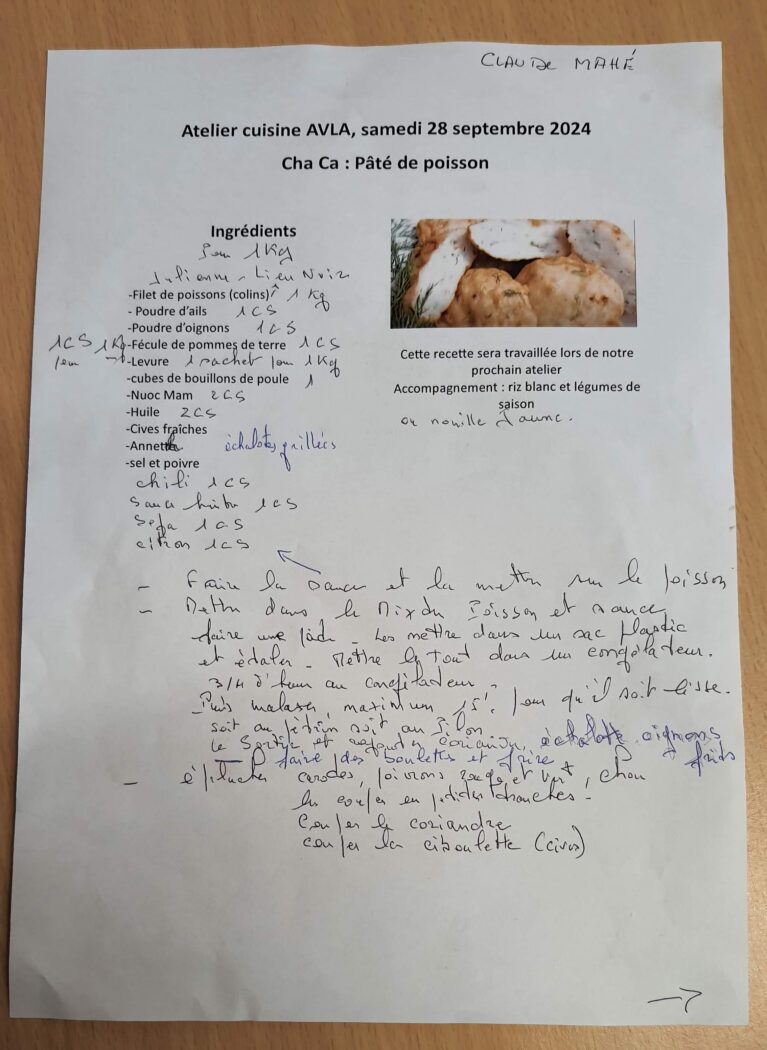 CLAUDE MAHÉ
Atelier cuisine AVLA, samedi 28 septembre 2024
Cha Ca : Pâté de poisson
Ingrédients
Pour 1 Kg
Julienne - Lieu Noir
-Filet de poissons (colins) 1 Kg
- Poudre d'ails 1 CS
-Poudre d'oignons 1 CS
1 CS pour 1 Kg → -Fécule de pommes de terre 1 CS
-Levure 1 sachet pour 1 Kg
-cubes de bouillons de poule 1
-Nuoc Mam 2 CS
-Huile 2 CS
-Cives fraîches
-Anneth échalotes grillées
-sel et poivre
chili 1 CS
sauce 1 CS
1 CS
citron 1 CS
Cette recette sera travaillée lors de notre
prochain atelier
Accompagnement : riz blanc et légumes de
saison
ou nouille Jaune.
- Faire la sauce et la mettre sur le poisson
- Mettre dans le Mix du Poisson et sauce
faire une pâte - Les mettre dans un sac plastic
et étaler - Mettre le tout dans un congélateur.
3/4 d'heure au congélateur -
Puis malaxer, maximum 15', pour qu'il soit lisse.
soit au pétrin soit au Pilon
Le Sortir et rajouter coriandre, échalote oignons frits
→ faire des boulettes et frire
- éplucher carottes, poivrons rouge et vert, chou
les couper en petites tranches -
Couper le coriandre
couper la ciboulette (cives)
→